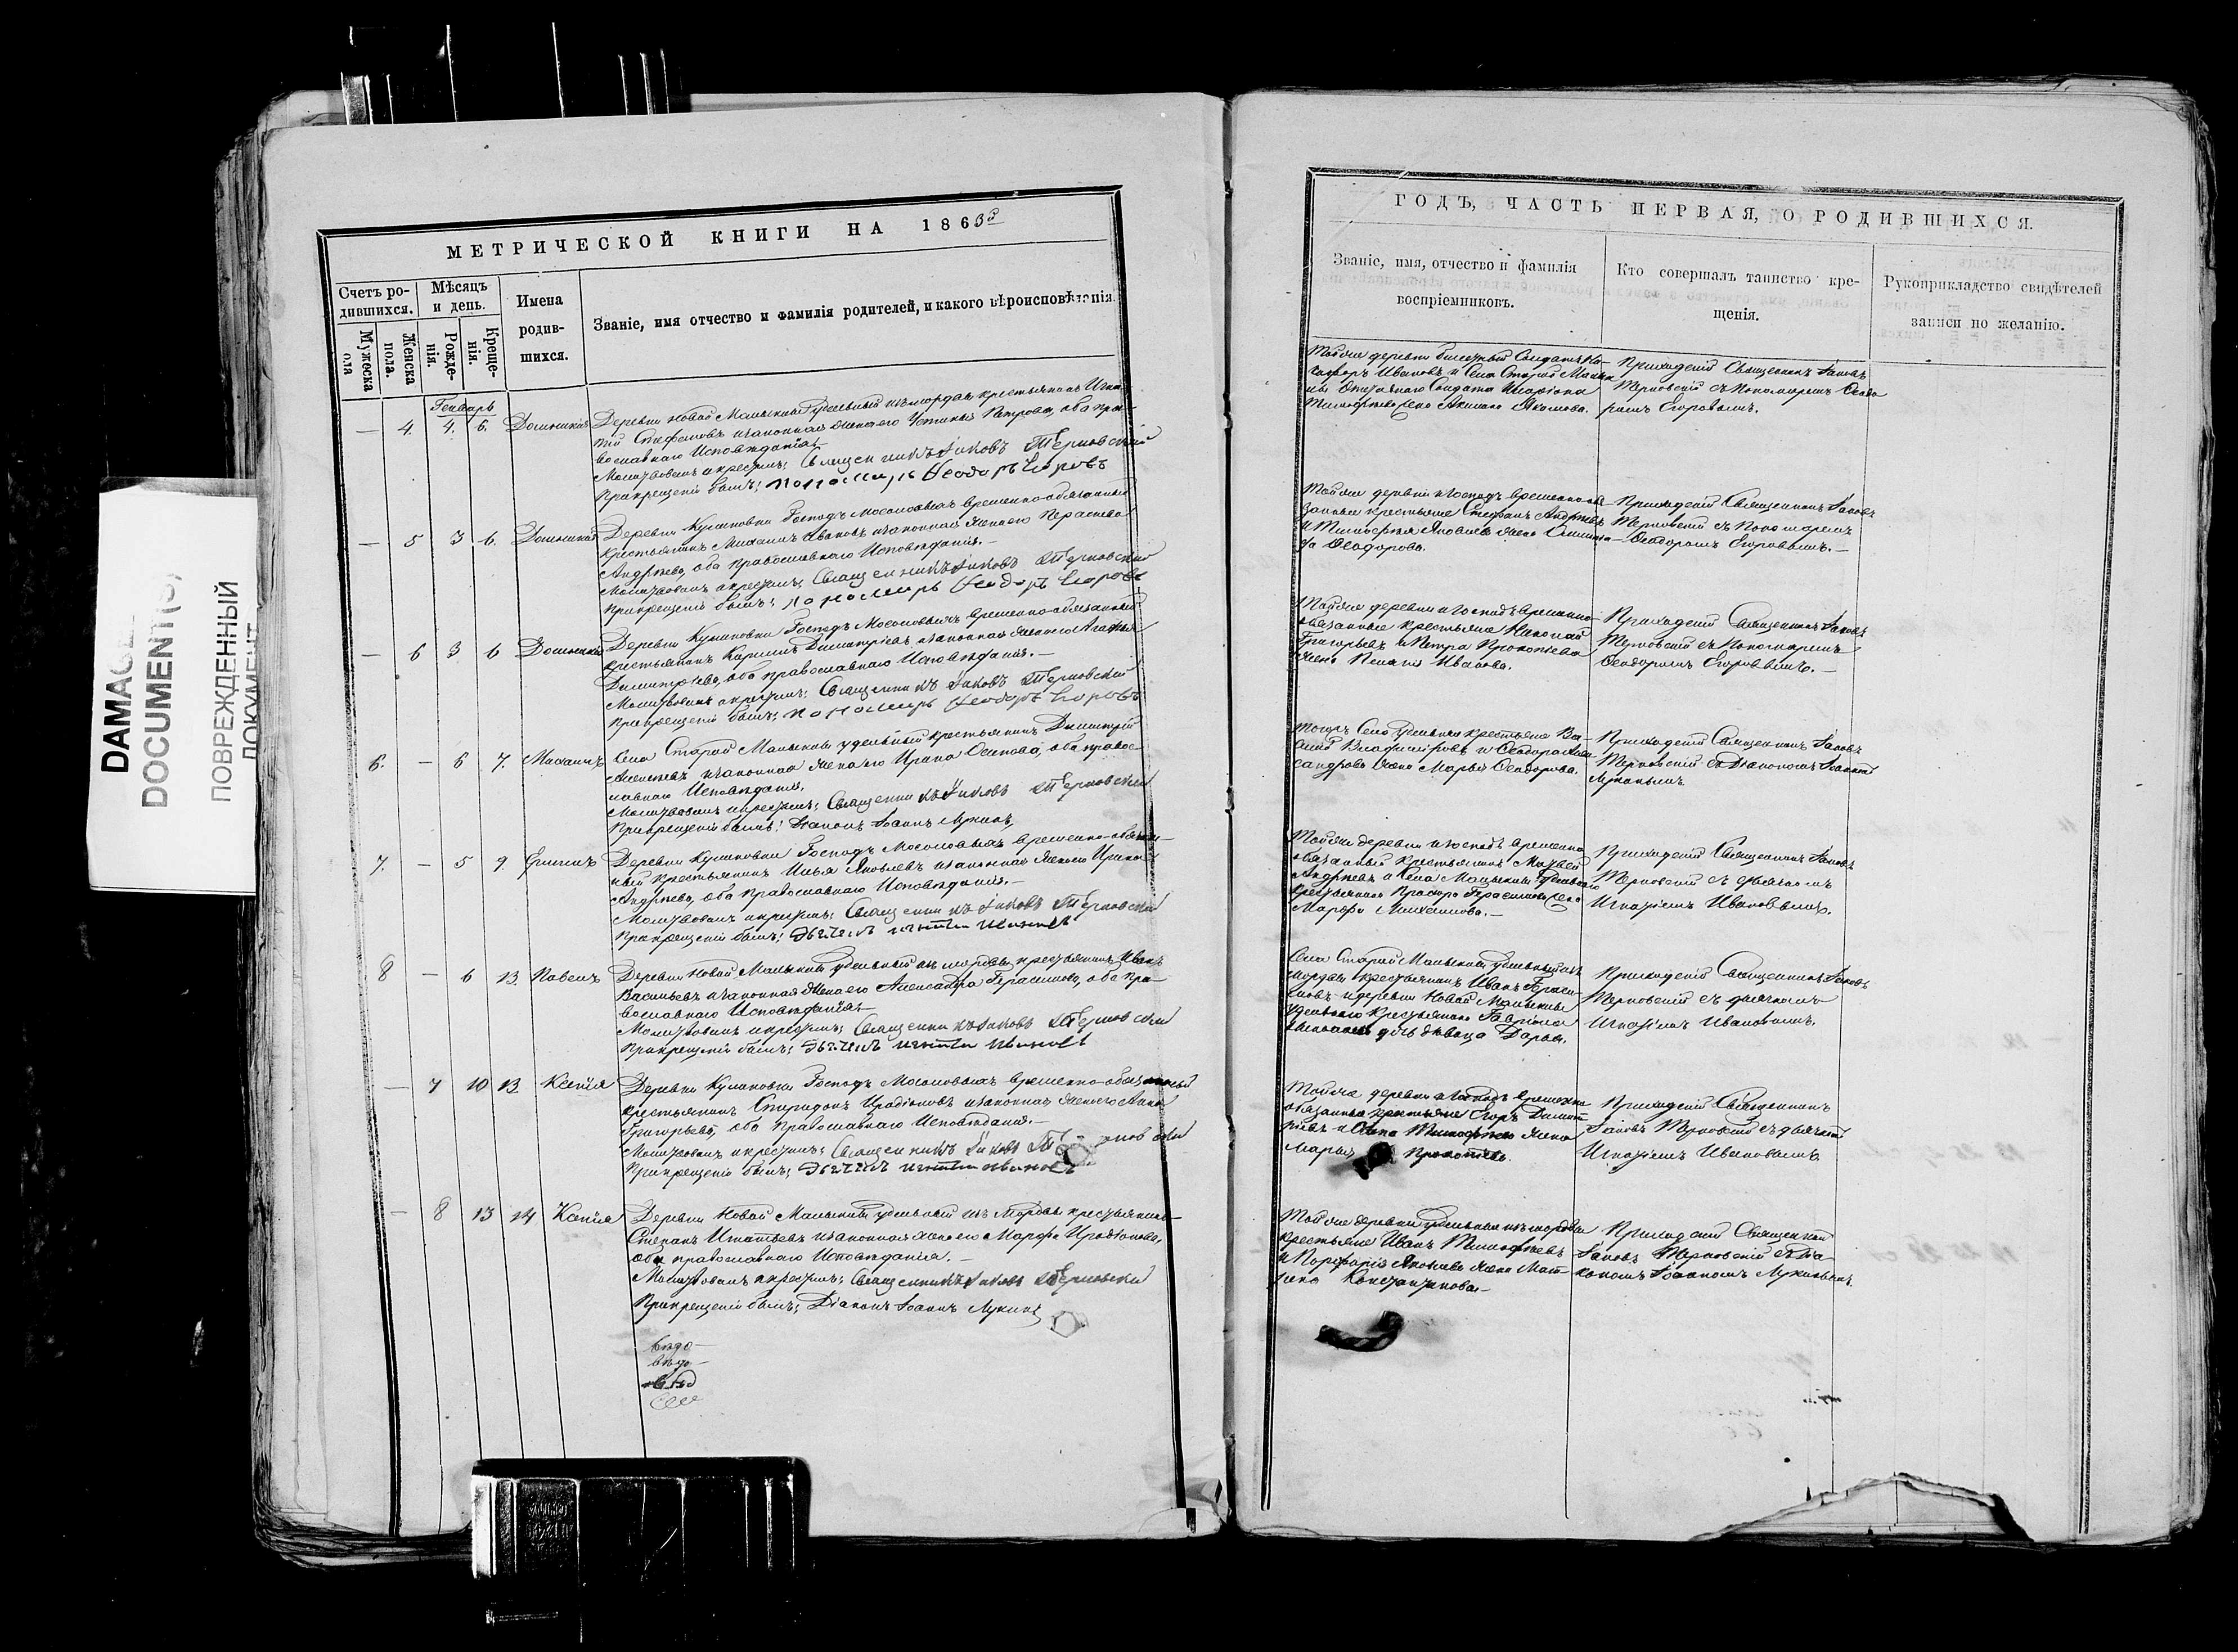 DAMAGE
DOCUMENT(S)
ПОВРЕЖДЕННЫЙ
ДОКУМЕНТ
МЕТРИЧЕСКОЙ КНИГИ НА 1863й
Счетъ ро-
дившихся.
Мѣсяцъ
и день.
Имена
родив-
шихся.
Званіе, имя отчество и фамилія родителей, и какого вѣроисповѣданія.
Мужеска
пола
Женска
пола.
Рожде-
нія.
Креще-
нія.
Генварь
— 4. 4. 6. Домникія
Деревни Новой Малыклы Удельный изъ мордвы крестьянинъ
Стефановъ и законная жена его Устинья Петрова, оба пра-
вославнаго Исповѣданія.
Молитвовалъ и крестилъ: Священникъ Іаковъ Терновскій
При крещеніи былъ: пономарь Ѳеодоръ Егоровъ
— 5 3 6. Домникія
Деревни Куликовки Господъ Мосоловыхъ временно-обязанный
крестьянинъ Михаилъ Ивановъ и законная жена его
Андреева, оба православнаго Исповѣданія.—
Молитвовалъ и крестилъ: Священникъ Іаковъ Терновскій
При крещеніи былъ: пономарь Ѳеодоръ Егоровъ
— 6 3 6 Домникія
Деревни Куликовки Господъ Мосоловыхъ временно-обязанный
крестьянинъ Димитріевъ и законная жена его Агафья
Димитріева, оба православнаго Исповѣданія.—
Молитвовалъ и крестилъ: Священникъ Іаковъ Терновскій
При крещеніи былъ: пономарь Ѳеодоръ Егоровъ
6. — 6 7. Михаилъ
Села Старой Малыклы удельный крестьянинъ Димитрій
и законная жена его Ирина Осипова, оба правос-
лавнаго Исповѣданія.
Молитвовалъ и крестилъ: Священникъ Іаковъ Терновскій
При крещеніи былъ: Діаконъ Іоаннъ Лукинъ
7. — 5 9.
Деревни Куликовки Господъ Мосоловыхъ временно-обязан-
ный крестьянинъ Илья Яковлевъ и законная жена его Ирина
Андреева, оба Православнаго Исповѣданія.—
Молитвовалъ и крестилъ: Священникъ Іаковъ Терновскій
При крещеніи былъ: Дьячекъ Ивановъ
8 — 6 13. Павелъ
Деревни Новой Малыклы удельный изъ мордвы крестьянинъ Иванъ
Васильевъ и законная жена его Александра Герасимова, оба Пра-
вославнаго Исповѣданія.
Молитвовалъ и крестилъ: Священникъ Іаковъ Терновскій
При крещеніи былъ: Дьячекъ Ивановъ
— 7 10 13 Ксенія
Деревни Куликовки Господъ Мосоловыхъ временно-обязанный
крестьянинъ Спиридонъ Иродіоновъ и законная жена его Анна
Григорьева, оба Православнаго Исповѣданія.—
Молитвовалъ и крестилъ: Священникъ Іаковъ
При крещеніи былъ: Дьячекъ Ивановъ
— 8 13 14 Ксенія
Деревни Новой Малыклы удельный изъ Мордвы крестьянинъ
Степанъ Игнатьевъ и законная жена его Марфа Иродіонова,
оба православнаго Исповѣданія.—
Молитвовалъ и крестилъ: Священникъ Іаковъ Терновскій
При крещеніи былъ: Діаконъ Іоаннъ Лукинъ
ГОДЪ, ЧАСТЬ ПЕРВАЯ, О РОДИВШИХСЯ.
Званіе, имя, отчество и фамилія
воспріемниковъ.
Кто совершалъ таинство кре-
щенія.
Рукоприкладство свидѣтелей
записи по желанію.
Той же деревни билетный Солдатъ
Ивановъ и Села Старой Малык-
лы Солдата Иларіона
Тимофеева жена
Приходскій Священникъ Іаковъ
Терновскій съ Пономаремъ Ѳеодо-
ромъ Егоровымъ.
Той же деревни и Господъ временнооб-
занные крестьяне Стефанъ Андреевъ
и Тимофея Яковлева жена
Ѳеодорова.
Приходскій Священникъ Іаковъ
Терновскій съ Пономаремъ
Ѳеодоромъ Егоровымъ.—
Той же деревни и Господъ временно-
обязанные крестьяне Николай
Григорьевъ и Петра Прокопіева
жена Иванова.
Приходскій Священникъ Іаковъ
Терновскій съ Пономаремъ
Ѳеодоромъ Егоровымъ.—
Тогожъ Села Удельные крестьяне Ва-
силій Владиміровъ и Ѳеодора Алек-
сандрова жена Марья Ѳеодорова.
Приходскій Священникъ Іаковъ
Терновскій съ Діакономъ Іоанномъ
Лукинымъ
Той же деревни и Господъ временно
обязанный крестьянинъ Матвей
Андреевъ и Села Малыклы Удельнаго
крестьянина жена
Марфа Михаилова.—
Приходскій Священникъ Іаковъ
Терновскій съ дьячкомъ
Игнатіемъ Ивановымъ.
Села Старой Малыклы удельный изъ
мордвы крестьянинъ Иванъ Гераси-
мовъ и деревни Новой Малыклы
удельнаго крестьянина
дочь девица Дарья.
Приходскій Священникъ Іаковъ
Терновскій съ дьячкомъ
Игнатіемъ Ивановымъ.
Той же деревни и Господъ временно
обязанные крестьяне Егоръ Димит-
ріевъ и жена
Марья Прокопіева.
Приходскій Священникъ
Іаковъ Терновскій съ дьячкомъ
Игнатіемъ Ивановымъ
Той же деревни Удельные изъ мордвы
крестьяне Иванъ Тимофеевъ
и Порфирія Яковлева жена Мат-
рена Константинова.—
Приходскій Священникъ
Іаковъ Терновскій съ Діа-
кономъ Іоанномъ Лукинымъ.